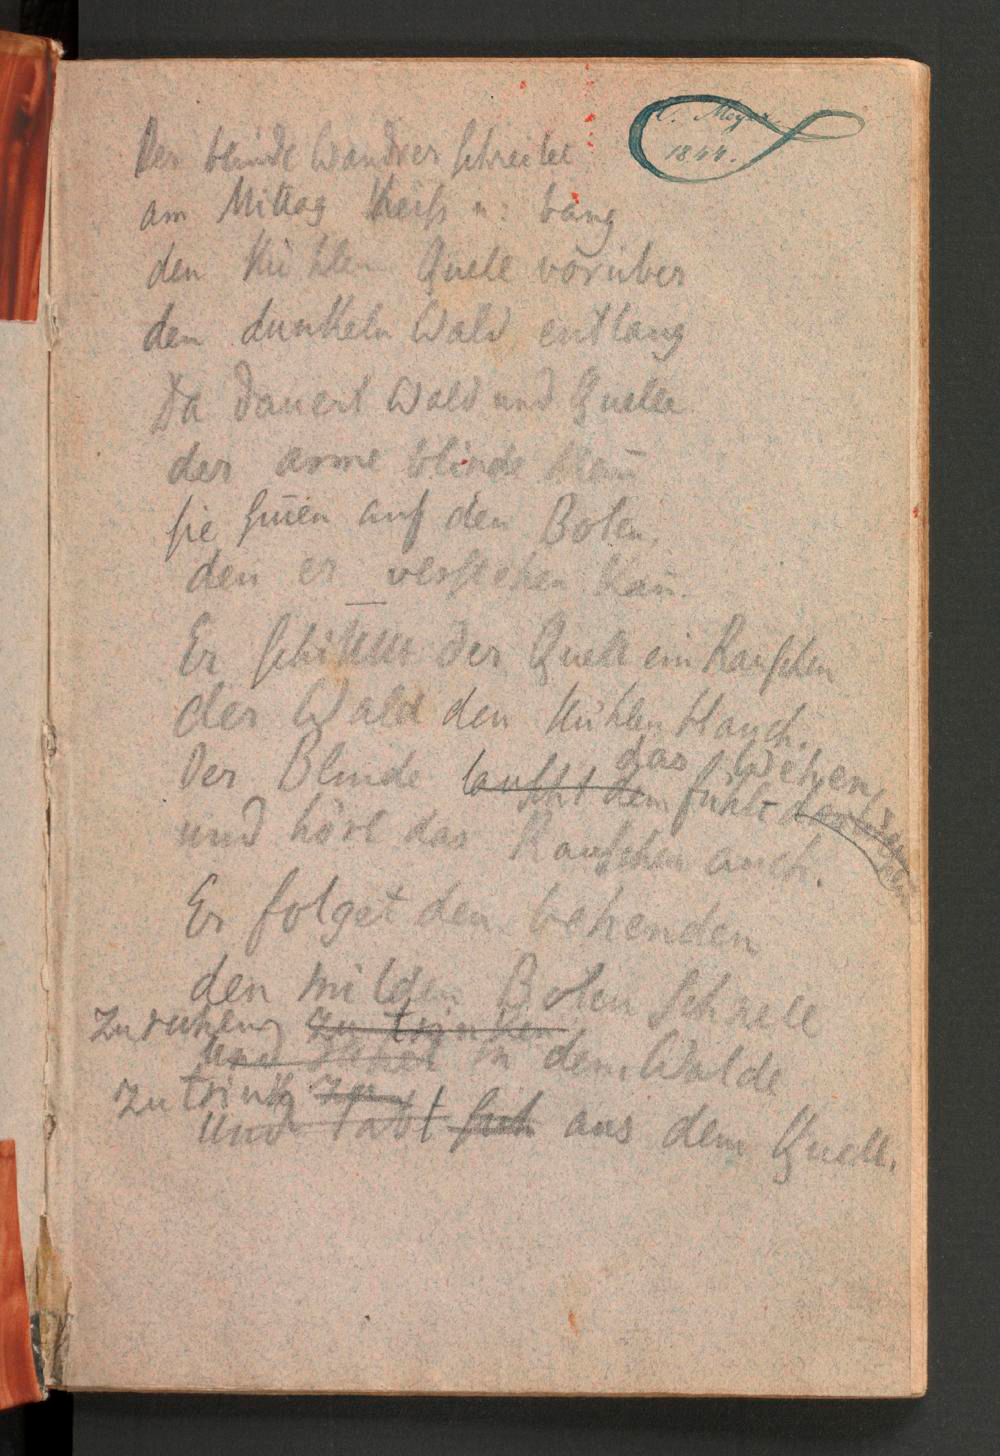 C. Meyer
1844.
Der blinde Wandrer schreitet
am Mittag heiß u: bang
den kühlen Quell vorüber
den dunkeln Wald entlang
Da dauert Wald und Quelle
der arme blinde Mañ
sie auf den Boten
den er verstehen kañ.
Er schickt der Quell ein Rauschen
der Wald den kühlen Hauch.
das Wehen,
Der Blinde lauscht dem fühlt
und hört das Rauschen auch.
Er folget den behenden
den milden Boten schnell
Zu ruhen zu trinken
und in dem Walde
Zu trink zu
und labt sich aus dem Quell.